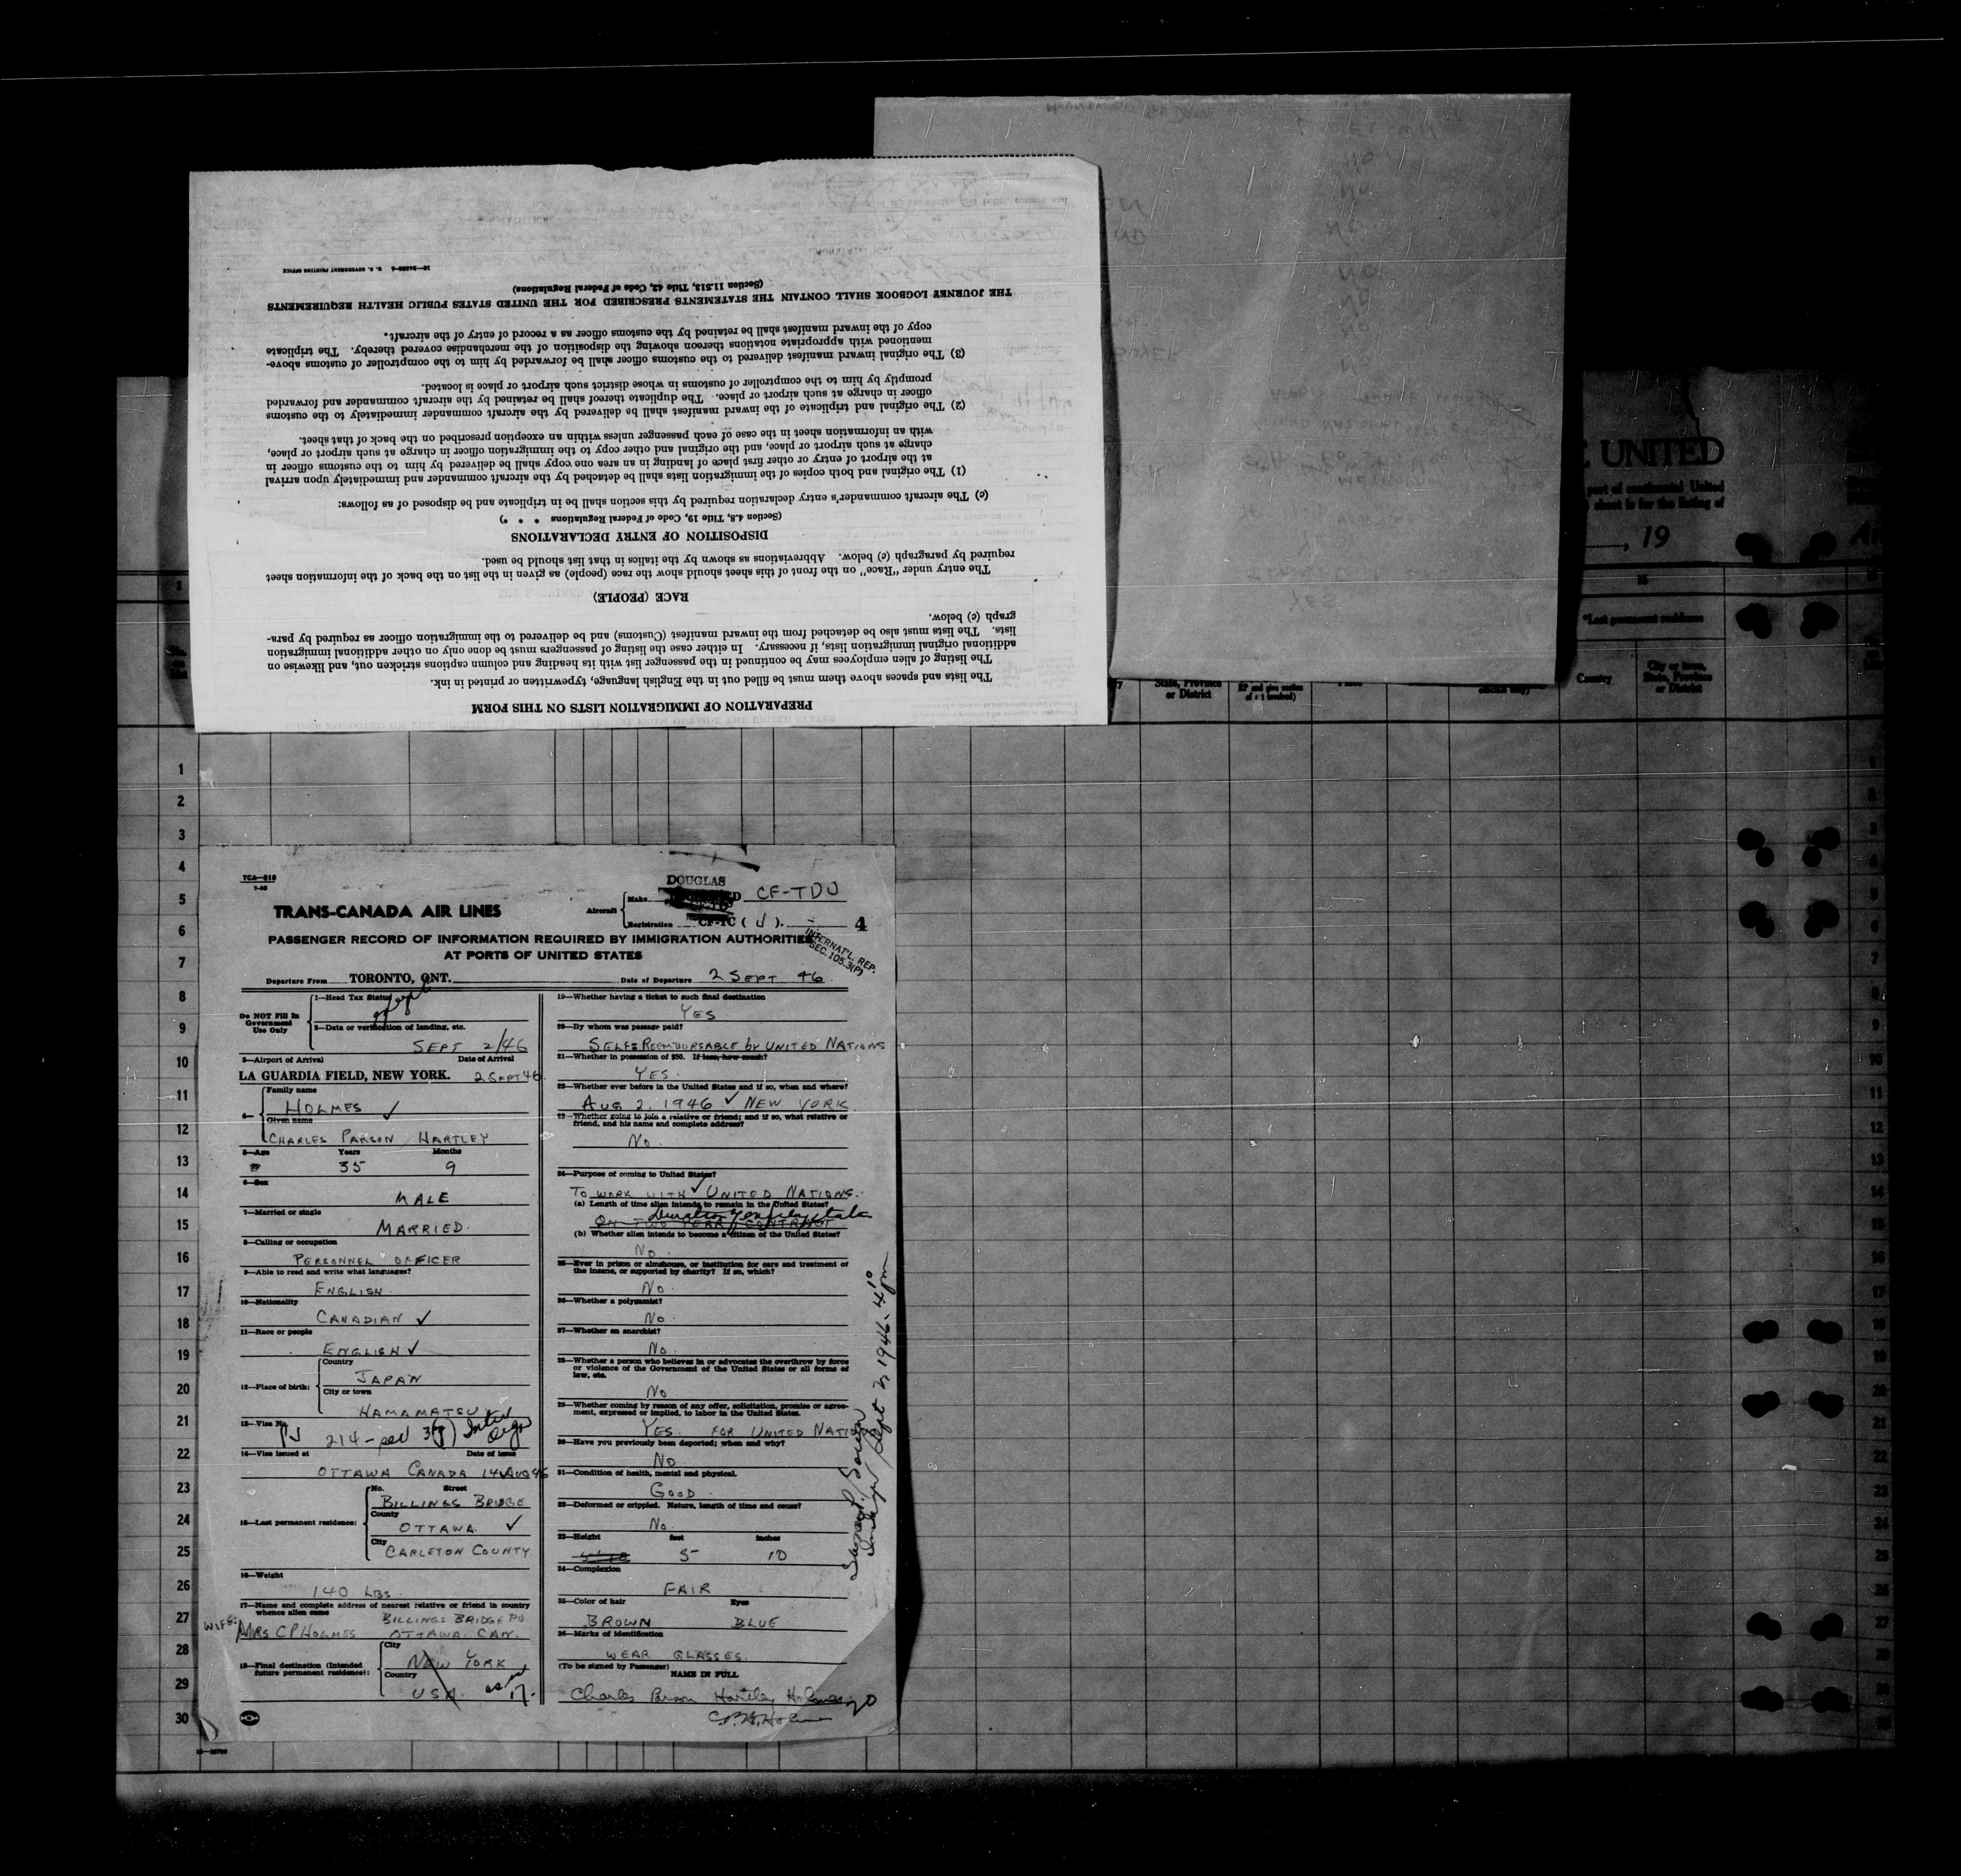 PREPARATION OF IMMIGRATION LISTS ON THIS FORM
The lists and spaces above them must be filled out in the English language, typewritten or printed in ink.
The listing of alien employees may be continued in the passenger list with its heading and column captions stricken out, and likewise on
additional original immigration lists, if necessary. In either case the listing of passengers must be done only on other additional immigration
lists. The lists must also be detached from the inward manifest (Customs) and be delivered to the immigration officer as required by para-
graph (c) below.
RACE (PEOPLE)
The entry under "Race" on the front of this sheet should show the race (people) as given in the list on the back of the information sheet
required by paragraph (c) below. Abbreviations as shown by the italics in that list should be used.
DISPOSITION OF ENTRY DECLARATIONS
(Section 4.8, Title 19, Code of Federal Regulations * * *)
(c) The aircraft commander's entry declaration required by this section shall be in triplicate and be disposed of as follows:
(1) The original and both copies of the immigration lists shall be detached by the aircraft commander and immediately upon arrival
at the airport of entry or other first place of landing in an area one copy shall be delivered by him to the customs officer in
charge at such airport or place, and the original and other copy to the immigration officer in charge at such airport or place,
with an information sheet in the case of each passenger unless within an exception prescribed on the back of that sheet.
(2) The original and triplicate of the inward manifest shall be delivered by the aircraft commander immediately to the customs
officer in charge at such airport or place. The duplicate thereof shall be retained by the aircraft commander and forwarded
promptly by him to the comptroller of customs in whose district such airport or place is located.
(3) The original inward manifest delivered to the customs officer shall be forwarded by him to the comptroller of customs above-
mentioned with appropriate notations thereon showing the disposition of the merchandise covered thereby. The triplicate
copy of the inward manifest shall be retained by the customs officer as a record of entry of the aircraft.
THE JOURNEY LOGBOOK SHALL CONTAIN THE STATEMENTS PRESCRIBED FOR THE UNITED STATES PUBLIC HEALTH REQUIREMENTS
(Section 11.513, Title 42, Code of Federal Regulations)
U. S. GOVERNMENT PRINTING OFFICE
UNITED
part of continental United
sheet is for the listing of
, 19
*Last permanent residence
Country
City or town,
State, Province
or District
State, Province
or District
1
2
3
4
5
6
7
8
9
10
11
12
13
14
15
16
17
18
19
20
21
22
23
24
25
26
27
28
29
30
TCA—818
DOUGLAS
Aircraft
Make CF-TDU
Registration CF-TC ( J ).
4
TRANS-CANADA AIR LINES
PASSENGER RECORD OF INFORMATION REQUIRED BY IMMIGRATION AUTHORITIES
AT PORTS OF UNITED STATES
INTERNAT'L. REP.
SEC. 105.3(P)
Departure From TORONTO, ONT. Date of Departure 2 SEPT 46
Do NOT Fill In
Government
Use Only
1—Head Tax Status
2—Data or verification of landing, etc.
SEPT 2/46
3—Airport of Arrival Date of Arrival
LA GUARDIA FIELD, NEW YORK. 2 SEPT 46.
4— Family name
HOLMES ✓
Given name
CHARLES PARSON HARTLEY
5—Age Years Months
35 9
6—Sex
MALE
7—Married or single
MARRIED.
8—Calling or occupation
PERSONNEL OFFICER
9—Able to read and write what languages?
ENGLISH.
10—Nationality
CANADIAN ✓
11—Race or people
ENGLISH ✓
12—Place of birth:
Country
JAPAN
City or town
HAMAMATSU
13—Visa No.
214 - sec 3(7)
14—Visa issued at Date of issue
OTTAWA CANADA 14 AUG 46
15—Last permanent residence:
No. Street
BILLINGS BRIDGE
County
OTTAWA. ✓
City
CARLETON COUNTY
16—Weight
140 LBS.
17—Name and complete address of nearest relative or friend in country
whence alien came BILLINGS BRIDGE PO
WIFE: MRS CP HOLMES OTTAWA. CAN.
18—Final destination (Intended
future permanent residence):
City
NEW YORK
Country
USA.
19—Whether having a ticket to such final destination
YES
20—By whom was passage paid?
SELF: REEMBURSABLE by UNITED NATIONS
21—Whether in possession of $50. If less, how much?
YES.
22—Whether ever before in the United States and if so, when and where?
AUG 2, 1946 ✓ NEW YORK
23—Whether going to join a relative or friend; and if so, what relative or
friend, and his name and complete address?
No.
24—Purpose of coming to United States?
TO WORK WITH ✓ UNITED NATIONS.
(a) Length of time alien intends to remain in the United States?
ON TWO YEAR CONTRACT.
(b) Whether alien intends to become a citizen of the United States?
No.
25—Ever in prison or almshouse, or institution for care and treatment of
the insane, or supported by charity? If so, which?
No.
26—Whether a polygamist?
No.
27—Whether an anarchist?
No.
28—Whether a person who believes in or advocates the overthrow by force
or violence of the Government of the United States or all forms of
law, etc.
No
29—Whether coming by reason of any offer, solicitation, promise or agree-
ment, expressed or implied, to labor in the United States.
YES. FOR UNITED NATIO
30—Have you previously been deported; when and why?
NO
31—Condition of health, mental and physical.
GOOD.
32—Deformed or crippled. Nature, length of time and cause?
No.
33—Height feet inches
5 10
34—Complexion
FAIR
35—Color of hair Eyes
BROWN BLUE
36—Marks of identification
WEAR GLASSES.
(To be signed by Passenger)
NAME IN FULL
Charles Parson Hartley Holmes
C.P.H. Holmes
Sept 2, 1946 - 4 10 pm